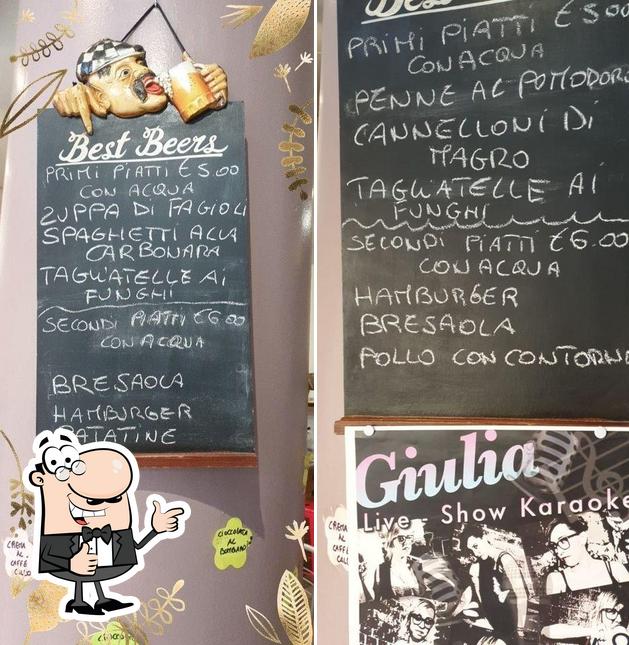 Best Beers
PRIMI PIATTI €5.00
CON ACQUA
ZUPPA DI FAGIOLI
SPAGHETTI ALLA
CARBONARA
TAGLIATELLE AI
FUNGHI
SECONDI PIATTI €6.00
CON ACQUA
BRESAOLA
HAMBURGER
PATATINE
CREMA
AL
CAFFÈ
CIOCCOLATA
AL
Best
PRIMI PIATTI €5.00
CON ACQUA
PENNE AL POMODORO
CANNELLONI DI
MAGRO
TAGLIATELLE AI
FUNGHI
SECONDI PIATTI €6.00
CON ACQUA
HAMBURGER
BRESAOLA
POLLO CON CONTORNO
Giulia
Live - Show Karaoke
CREMA
AL
CAFFÈ